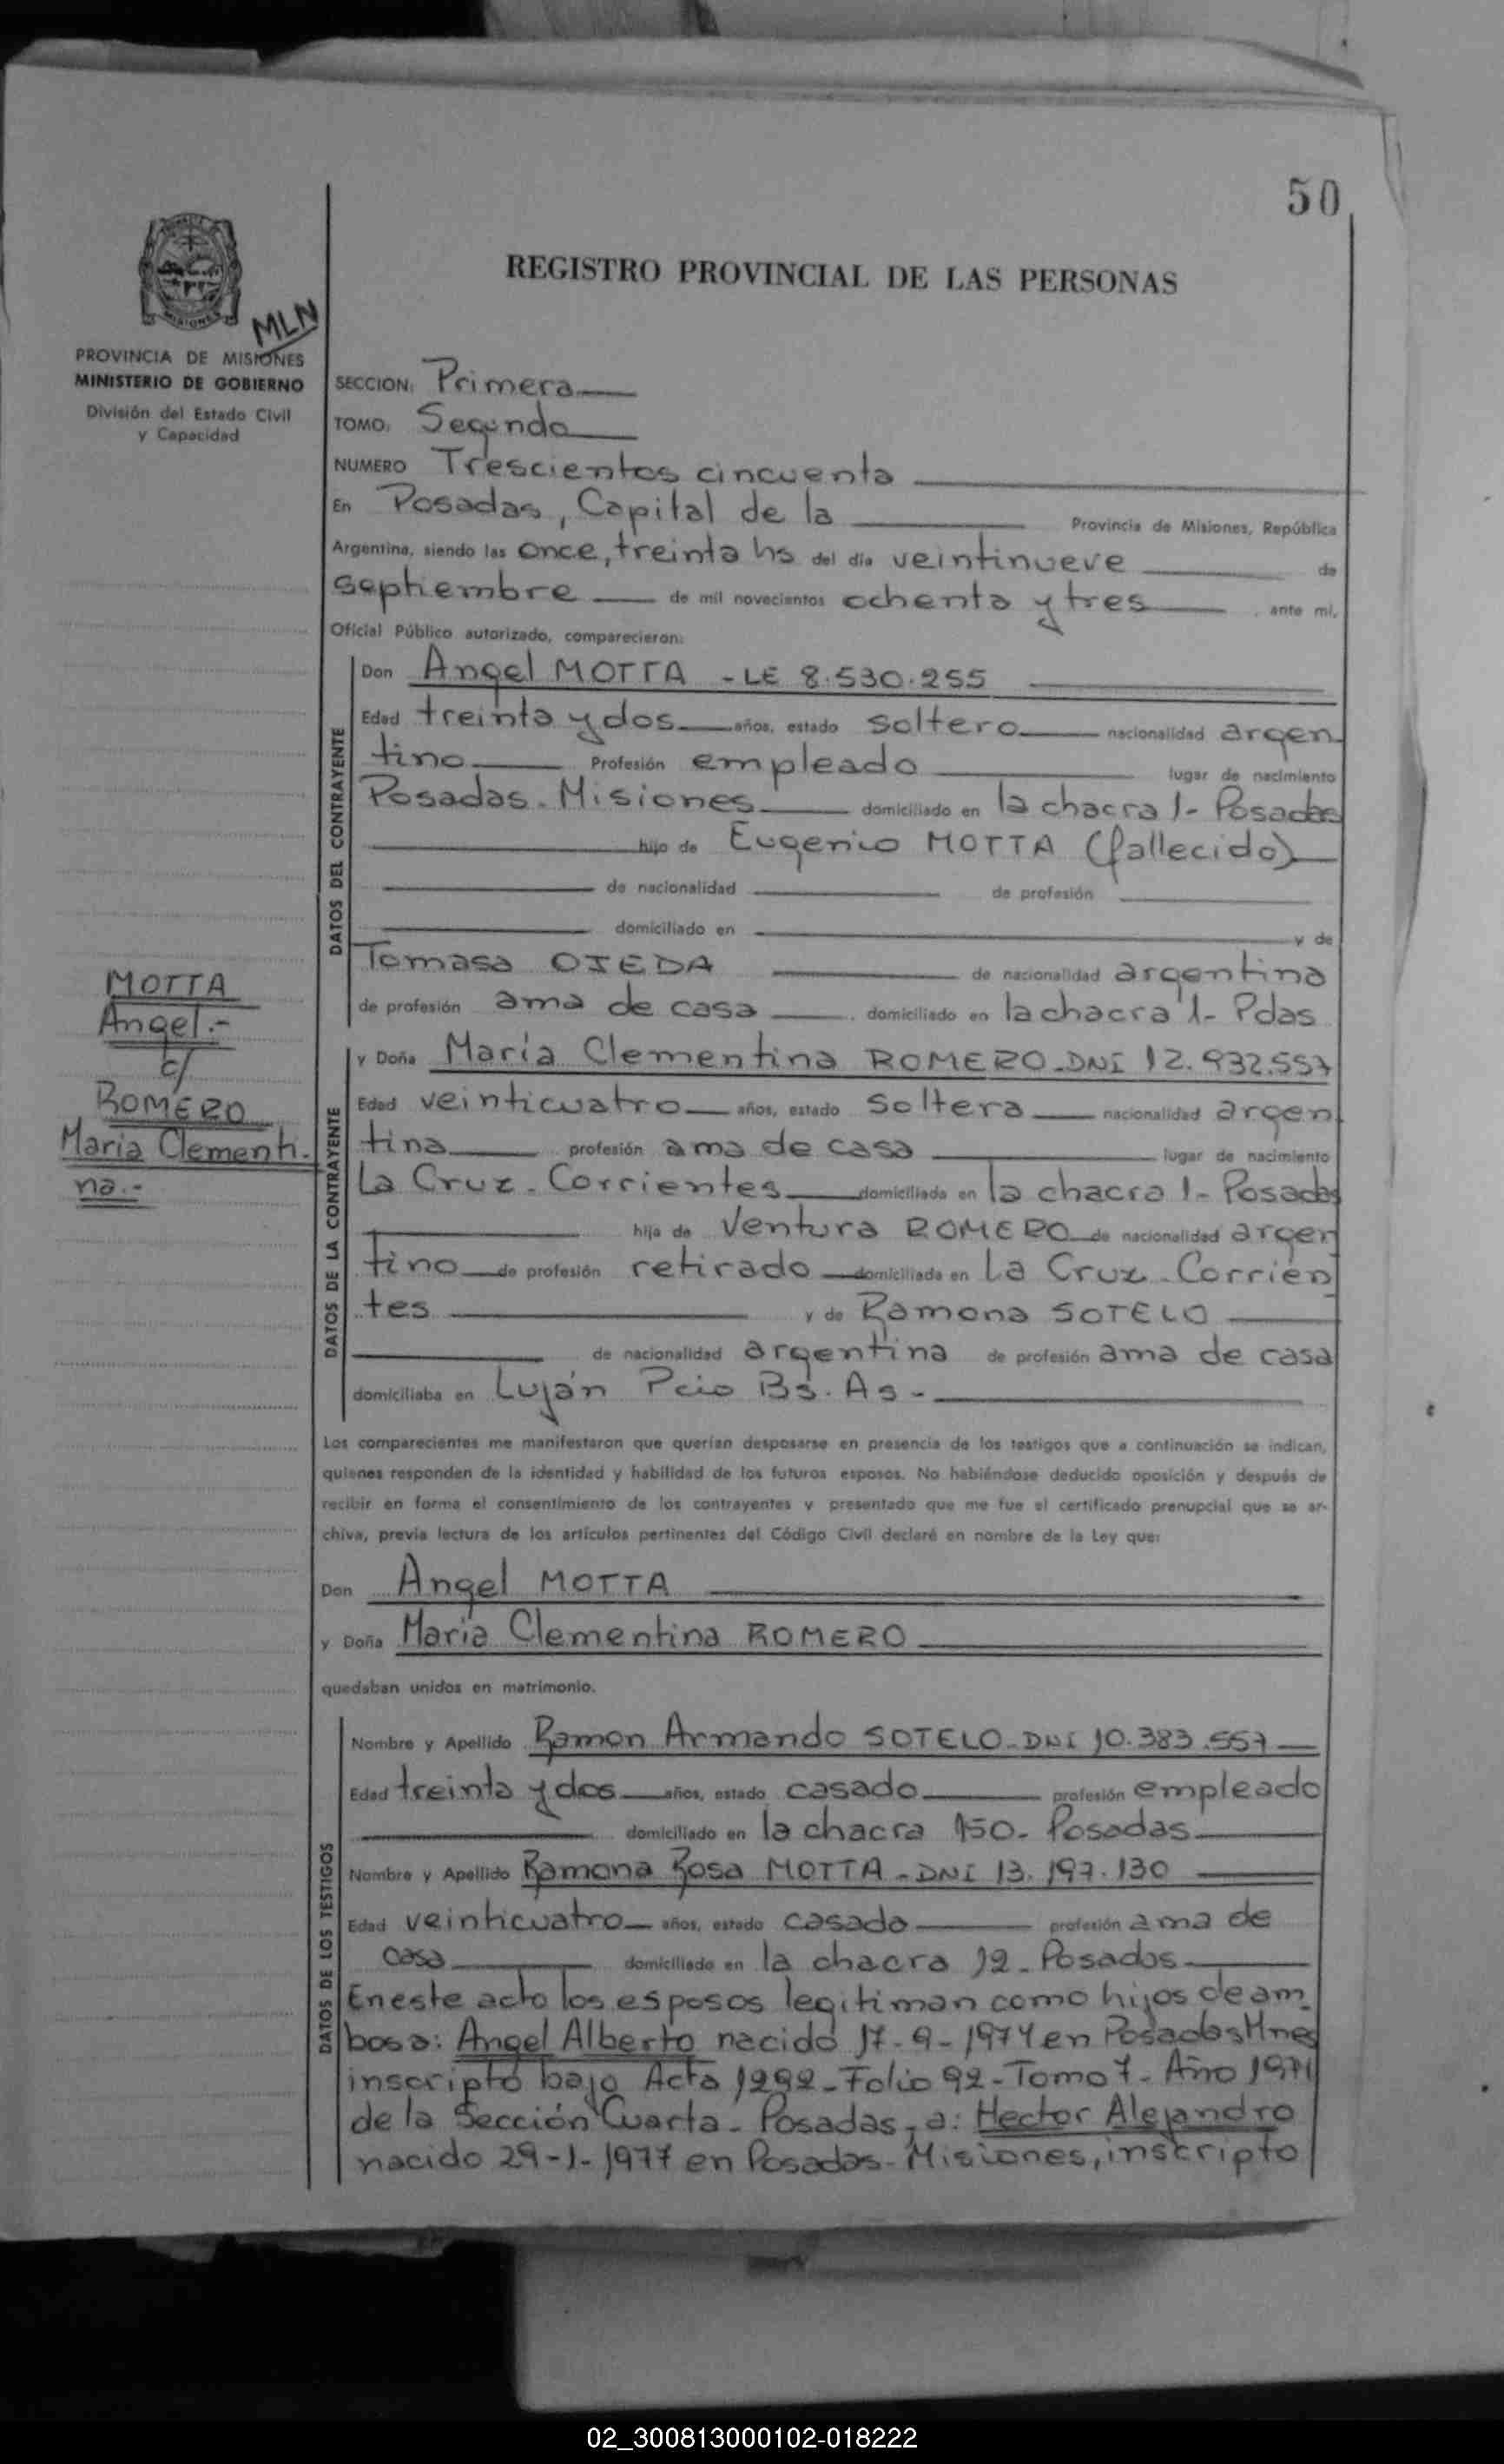 50
MLN
PROVINCIA DE MISIONES
MINISTERIO DE GOBIERNO
División del Estado Civil
y Capacidad
REGISTRO PROVINCIAL DE LAS PERSONAS
SECCION: Primera
TOMO: Segundo
NUMERO Trescientos cincuenta
En Posadas, Capital de la Provincia de Misiones, República
Argentina, siendo las once, treinta hs del día veintinueve de
septiembre de mil novecientos ochenta y tres, ante mí,
Oficial Público autorizado, comparecieron:
DATOS DEL CONTRAYENTE
Don Angel MOTTA - LE 8.530.255
Edad treinta y dos años, estado soltero nacionalidad argen
tino Profesión empleado lugar de nacimiento
Posadas - Misiones domiciliado en la chacra 1- Posadas
hijo de Eugenio MOTTA (fallecido)
de nacionalidad de profesión
domiciliado en y de
Tomasa OJEDA de nacionalidad argentina
de profesión ama de casa domiciliado en la chacra 1- Pdas
MOTTA
Angel.-
c/
ROMERO
Maria Clementi-
na.-
DATOS DE LA CONTRAYENTE
y Doña María Clementina ROMERO - DNI 12.932.557
Edad veinticuatro años, estado soltera nacionalidad argen
tina profesión ama de casa lugar de nacimiento
La Cruz - Corrientes domiciliada en la chacra 1- Posadas
hija de Ventura ROMERO de nacionalidad argen
tino de profesión retirado domiciliada en La Cruz - Corrien
tes y de Ramona SOTELO
de nacionalidad argentina de profesión ama de casa
domiciliaba en Luján Pcio Bs. As -
Los comparecientes me manifestaron que querían desposarse en presencia de los testigos que a continuación se indican,
quienes responden de la identidad y habilidad de los futuros esposos. No habiéndose deducido oposición y después de
recibir en forma el consentimiento de los contrayentes y presentado que me fue el certificado prenupcial que se ar-
chiva, previa lectura de los artículos pertinentes del Código Civil declaré en nombre de la Ley que:
Don Angel MOTTA
y Doña María Clementina ROMERO
quedaban unidos en matrimonio.
DATOS DE LOS TESTIGOS
Nombre y Apellido Ramon Armando SOTELO - DNI 10.383.557
Edad treinta y dos años, estado casado profesión empleado
domiciliado en la chacra 150- Posadas
Nombre y Apellido Ramona Rosa MOTTA - DNI 13.197.130
Edad veinticuatro años, estado casada profesión ama de
casa domiciliado en la chacra 12 - Posadas
En este acto los esposos legitiman como hijos de am-
bos a: Angel Alberto nacido 17-9-1974 en Posadas Mnes
inscripto bajo Acta 1292 - Folio 92 - Tomo 7 - Año 1974
de la Sección Cuarta - Posadas, a: Hector Alejandro
nacido 29-1-1977 en Posadas - Misiones, inscripto
02_300813000102-018222